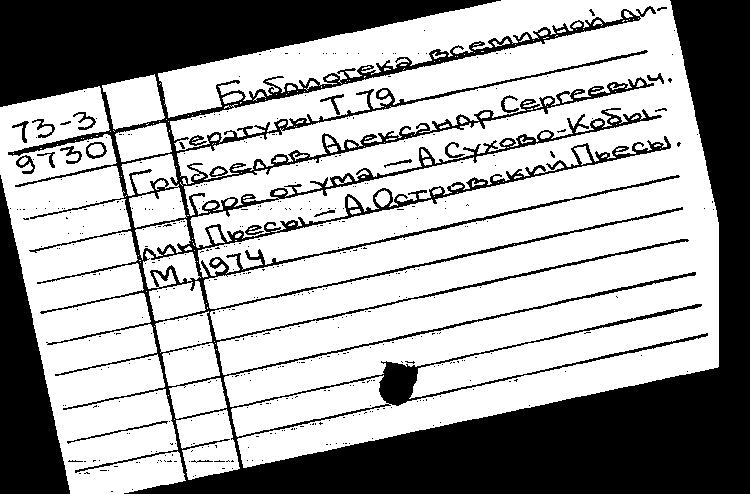 Библиотека всемирной ли-
73-3
9730
тературы. Т. 79.
Грибоедов, Александр Сергеевич.
Горе от ума. — А. Сухово-Кобы-
лин. Пьесы. — А. Островский. Пьесы.
М., 1974.